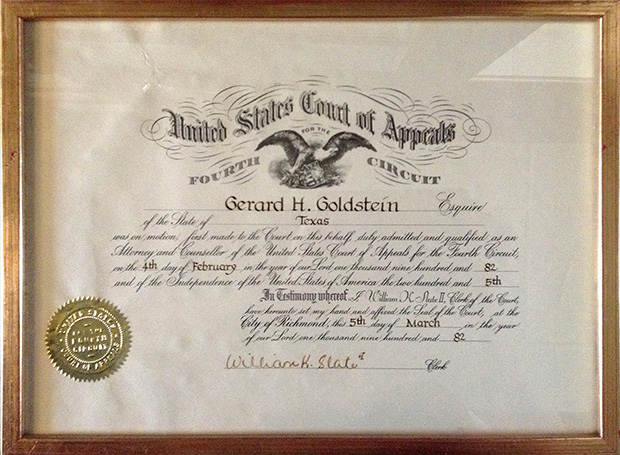 United States Court of Appeals
FOR THE
FOURTH CIRCUIT
Gerard H. Goldstein Esquire
of the State of Texas
was on motion, first made to the Court on this behalf, duly admitted and qualified as an
Attorney and Counsellor of the United States Court of Appeals for the Fourth Circuit,
on the 4th day of February in the year of our Lord one thousand nine hundred and 82
and of the Independence of the United States of America the two hundred and 5th
In Testimony whereof I William K. Slate II, Clerk of the Court,
have hereunto set my hand and affixed the Seal of the Court, at the
City of Richmond, this 5th day of March in the year
of our Lord one thousand nine hundred and 82
William K. Slate II Clerk
UNITED STATES
FOURTH
CIRCUIT
COURT OF APPEALS